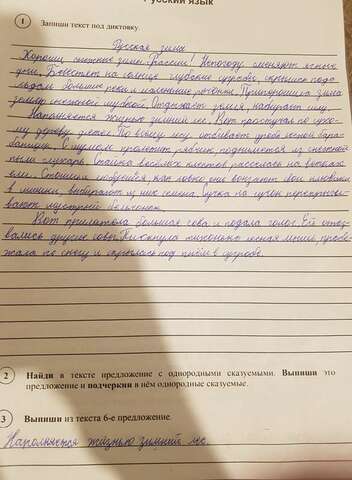 усский язык
1 Запиши текст под диктовку.
Русская зима
Хороши снежные зимы России! Непогоду сменяют ясные
дни. Блестят на солнце глубокие сугробы, скрылись подо
льдом большие реки и маленькие речонки. Припорошила зима
землю снежной шубкой. Отдыхает земля, набирает силу.
Наполняется жизнью зимний лес. Вот простучал по сухо-
му дереву дятел. По всему лесу отбивает дробь лесной бара-
банщик. С шумом пролетит рябчик, поднимется из снежной
пыли глухарь. Стайка весёлых клестов расселась на ветках
ели. Стоишь и любуешься, как ловко они вонзают свои клювики
в шишки, выбирают из них семена. С сучка на сучок перепрыги-
вает шустрый бельчонок.
Вот прилетела большая сова и подала голос. Ей отоз-
вались другие совы. Пискнула тихонько лесная мышь, пробе-
жала по снегу и скрылась под пнём в сугробе.
2 Найди в тексте предложение с однородными сказуемыми. Выпиши это
предложение и подчеркни в нём однородные сказуемые.
3 Выпиши из текста 6-е предложение.
Наполняется жизнью зимний лес.